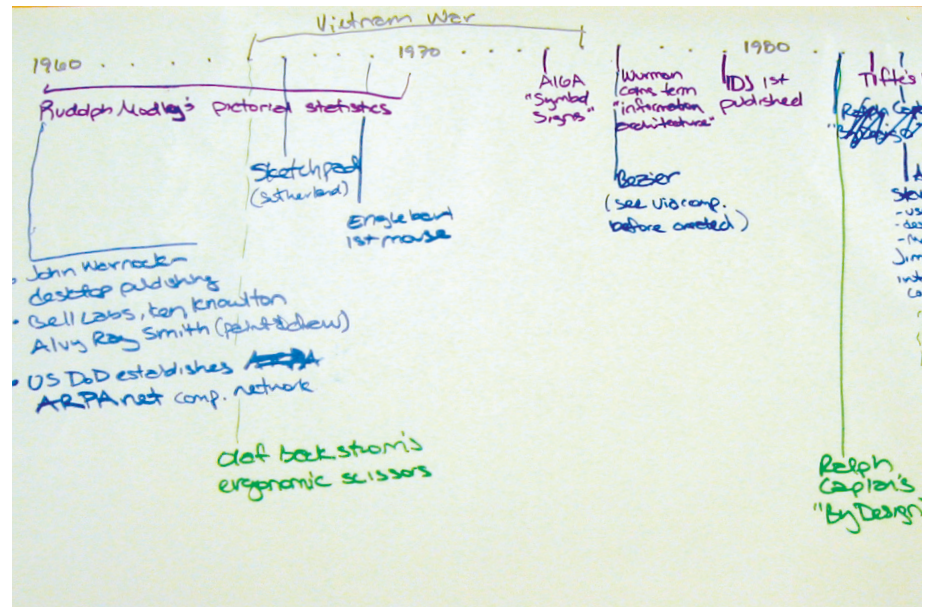 Vietnam War
1960 . . . . . . . . 1970 . . . . . . . . 1980 .
Rudolph Modley's pictorial statistics
AIGA
"Symbol
Signs"
Wurman
coins term
"information
architecture"
IDJ 1st
published
Tufte's
Ralph
"By Design"
Sketchpad
(Sutherland)
Englebart
1st mouse
Bezier
(see vis comp.
before created)
• John Warnock–
desktop publishing
• Bell Labs, Ken Knowlton
Alvy Ray Smith (paint & draw)
• US DoD establishes ARPA
ARPAnet comp. network
olof backstrom's
ergonomic scissors
Ralph
Caplan's
"By Design